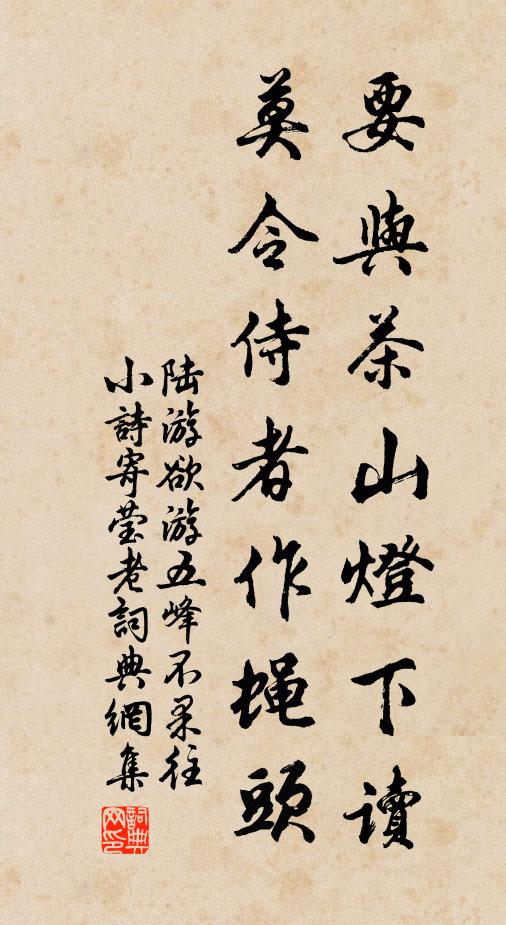 要與茶山燈下讀
莫令侍者作蝇頭
陆游欲游五峰不果往
小詩寄莹老詞典網集
詞典网印